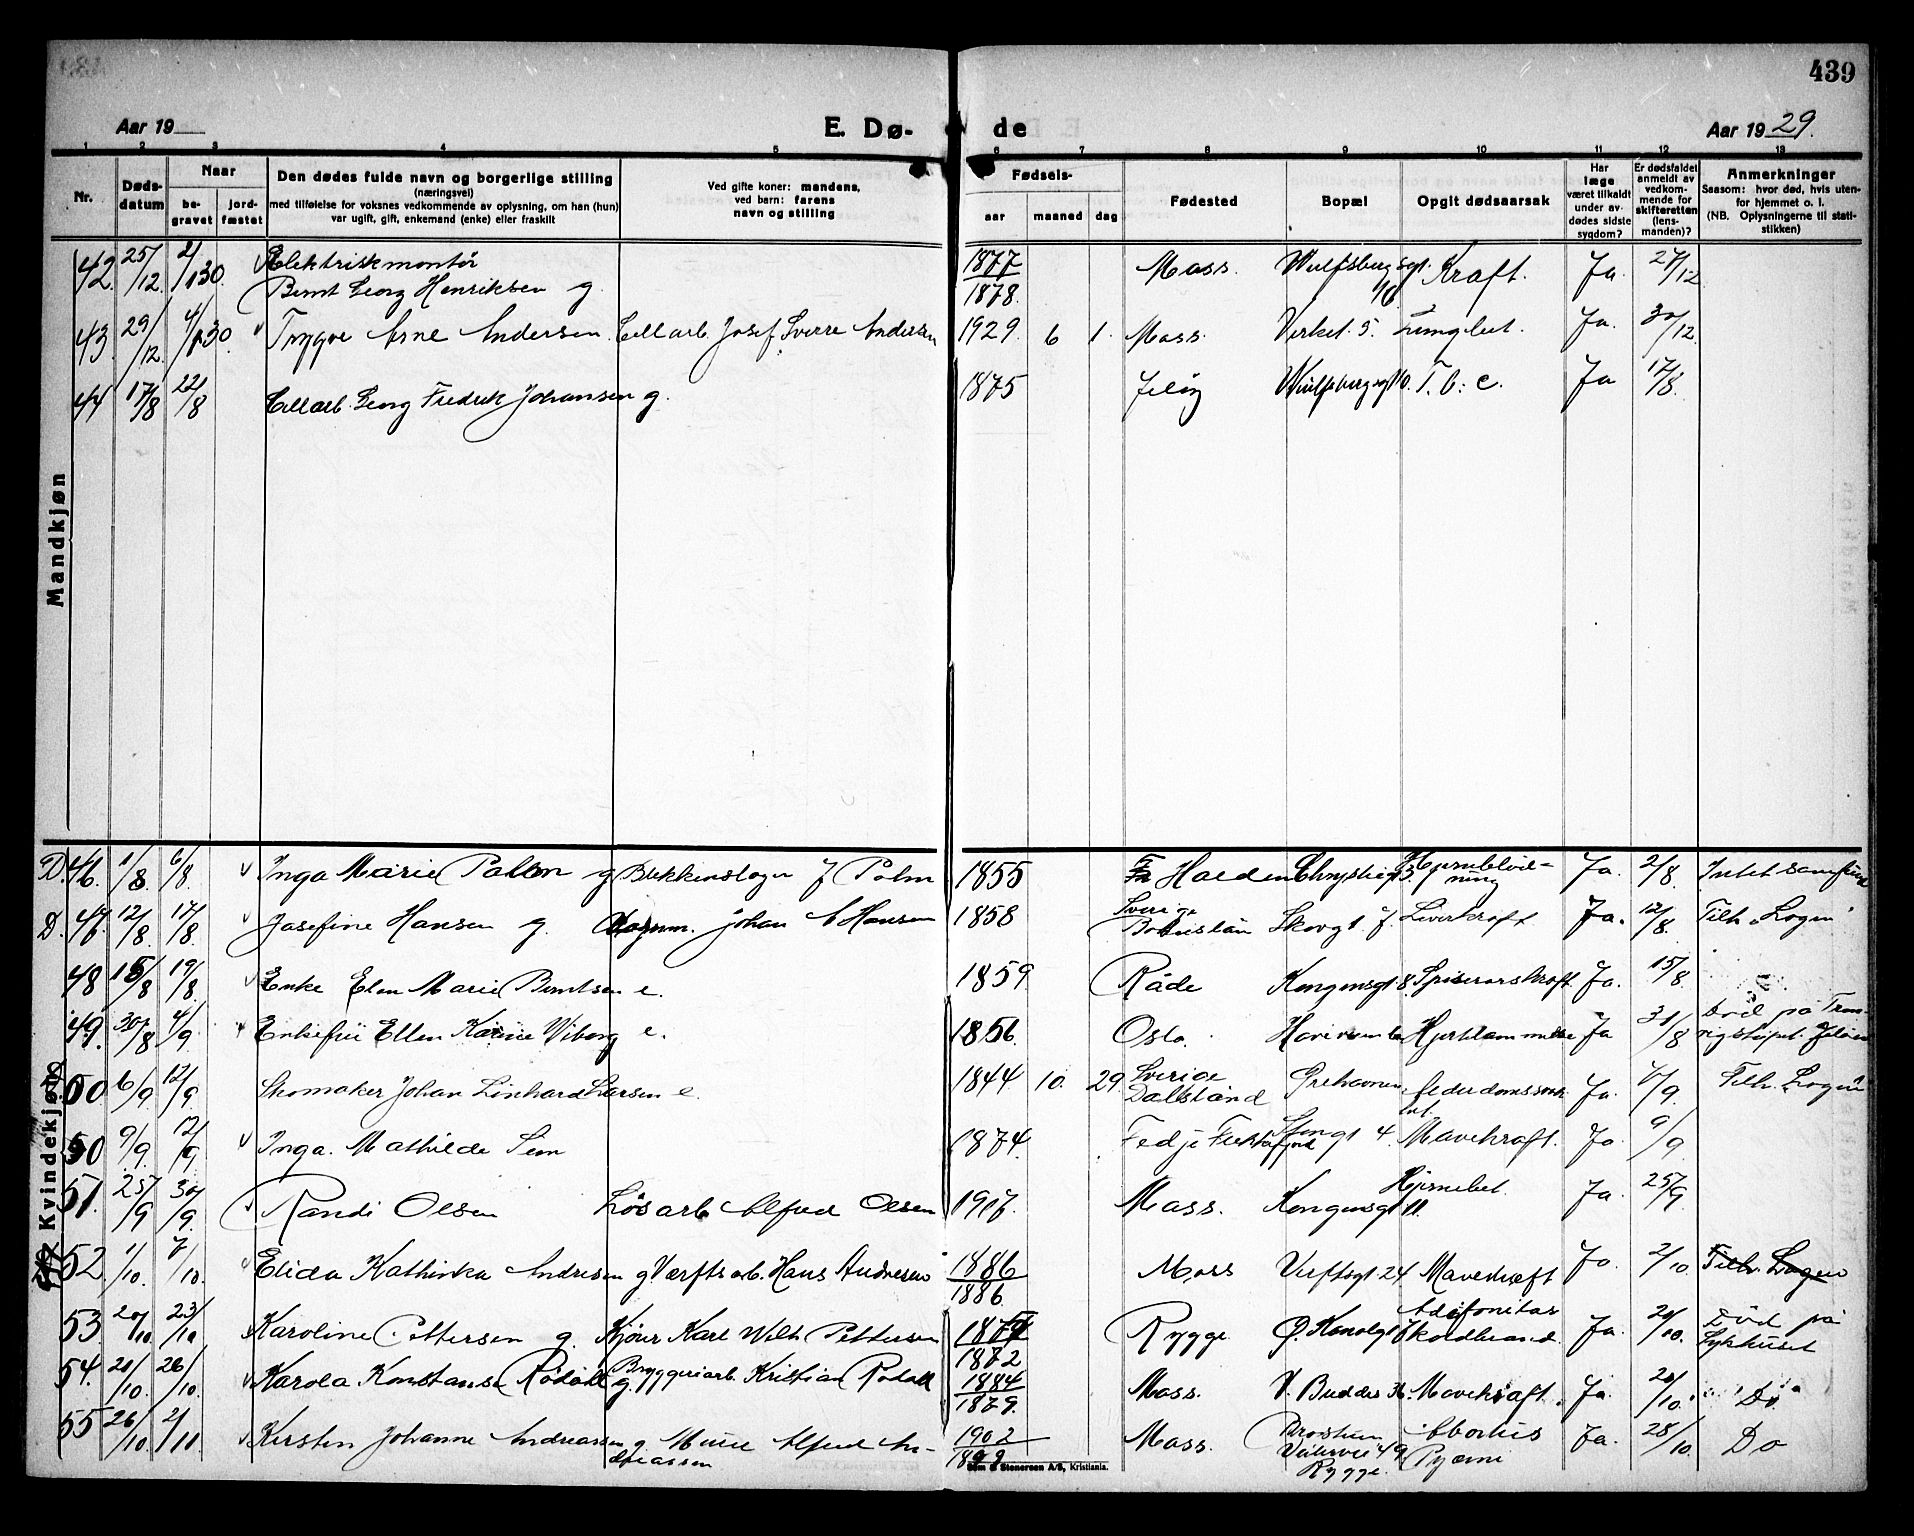 439
Aar 19
E. Dø-
de
Aar 1929.
1 2 3 4 5 6 7 8 9 10 11 12 13
Nr.
Døds-
datum
Naar
be-
gravet
jord-
fæstet
Den dødes fulde navn og borgerlige stilling
(næringsvei)
med tilføielse for voksnes vedkommende av oplysning, om han (hun)
var ugift, gift, enkemand (enke) eller fraskilt
Ved gifte koner: mandens,
ved barn: farens
navn og stilling
Fødsels-
aar
maaned
dag
Fødested
Bopæl
Opgit dødsaarsak
Har
læge
været tilkaldt
under av-
dødes sidste
sygdom?
Er dødsfaldet
anmeldt av
vedkom-
mende for
skifteretten
(lens-
manden)?
Anmerkninger
Saasom: hvor død, hvis uten-
for hjemmet o. l.
(NB. Oplysningerne til stati-
stikken)
Mandkjøn
42. 25/12. 2/1 30 Elektriskmontør
Bernt Georg Henriksen g. 1877
1878. Moss. Wulfsbergsgt. 16 Kraft. Ja. 27/12
43. 29/12. 4/1 30 Trygve Arne Andersen. Cellarb. Josef Sverre Andersen 1929 6 1. Moss. Verket 5. Lungebet. Ja. 30/12
44 17/8 22/8 Cellarb. Georg Fredrik Johansen g. 1875 Jeløy Wulfsbergsgt 10. T. b. c. Ja 17/8.
Kvindekjøn
D. 46. 1/8 6/8. Inga Marie Palm g Blikkenslager J Palm 1855 Halden Chrystiegt 3. Hjerneblød-
ning Ja. 2/8. Intet samfund
D. 47. 12/8. 17/8. Josefine Hansen g. Johan A Hansen 1858 Sverige
Bohuslän Skovgt 7. Leverkræft Ja. 12/8. Tilh. "Logen"
48 15/8 19/8. Enke Elen Marie Berntsen e. 1859. Råde Kongensgt 8. Spiserørskræft Ja. 15/8
49. 30/8 4/9 Enkefru Ellen Karine Viborg e. 1856. Oslo. Hjerteslammelse Ja 31/8 Død på Tron-
vigs Jeløen
50 6/9. 12/9. Skomaker Johan Linhard Larsen e. 1844 10. 29. Sverige
Dalsland Ja. 7/9. Tilh. Logen
50 9/9. 12/9 Inga. Mathilde Sem 1874. Fedje 4. Mavekræft. Ja 9/9
51. 25/9 30/9. Randi Olsen Løsarb Alfred Olsen 1917. Moss. Kongensgt 11. Hjernebet. Ja. 25/9
52. 1/10. 7/10. Elida Kathinka Andresen g Værftsarb. Hans Andresen 1886
1886. Moss Verftsgt 24 Mavekræft Ja. 2/10. Tilh. Logen
53. 20/10. 23/10 Karoline Pettersen g. Kjører Karl Wilh Pettersen 1872 Rygge Ø. Kanalgt 7 Koldbrand. Ja. 21/10. Død på
Sykhuset
54. 21/10. 26/10. Karola Konstanse Rødahl g. Bryggeriarb. Kristian Rødahl 1884
1879. Moss. V. Buddes 36. Mavekræft. Ja. 21/10. " Do "
55 26/10. 2/11 Kirsten Johanne Andreassen g. Murer Alfred An-
dreassen 1902 Moss.
Rygge. Abortus Ja. 28/10 Do
Sem & Stenersen A/S, Kristiania.